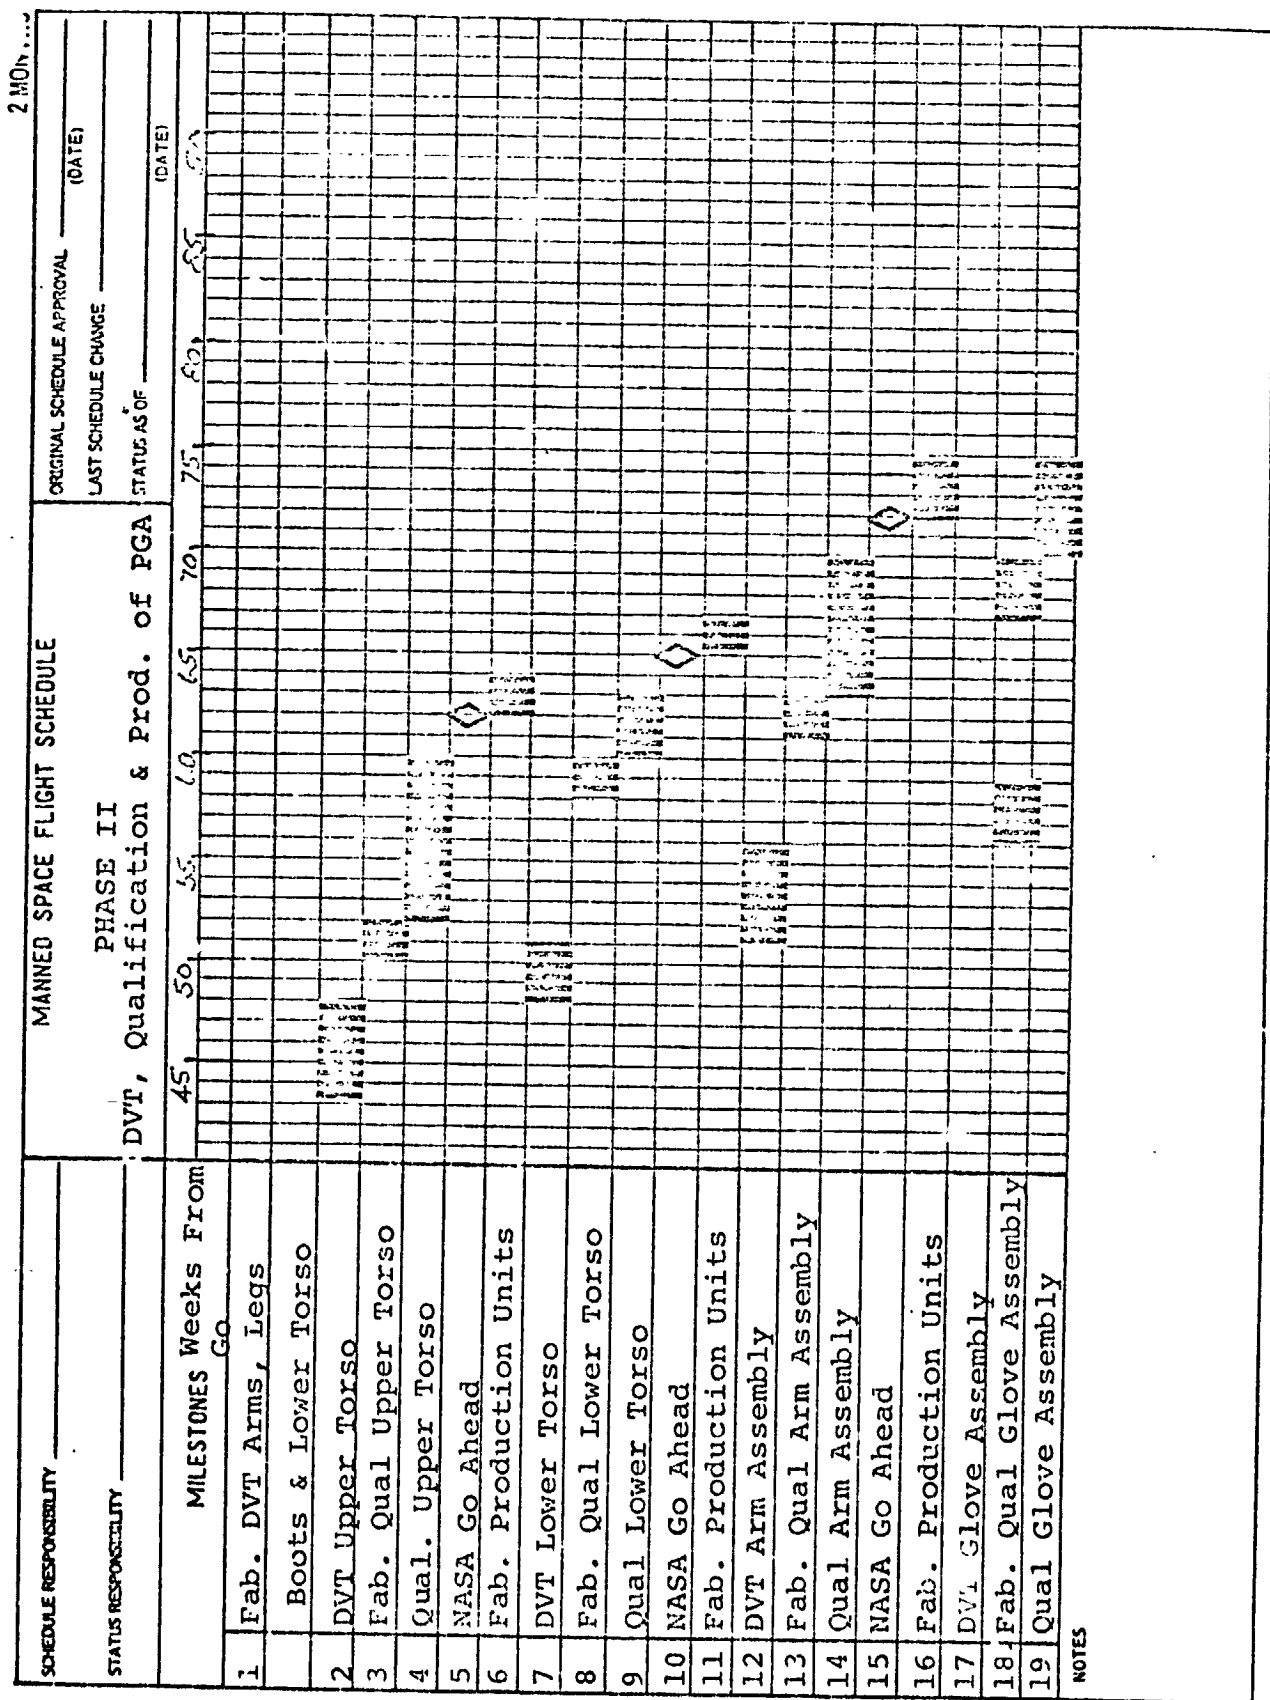 2 MON
SCHEDULE RESPONSIBILITY
STATUS RESPONSIBILITY
MANNED SPACE FLIGHT SCHEDULE
PHASE II
DVT, Qualification & Prod. of PGA
ORIGINAL SCHEDULE APPROVAL
(DATE)
LAST SCHEDULE CHANGE
STATUS AS OF
(DATE)
MILESTONES Weeks From
Go
45 50 55 60 65 70 75 80 85
1 Fab. DVT Arms, Legs
Boots & Lower Torso
2 DVT Upper Torso
3 Fab. Qual Upper Torso
4 Qual. Upper Torso
5 NASA Go Ahead
6 Fab. Production Units
7 DVT Lower Torso
8 Fab. Qual Lower Torso
9 Qual Lower Torso
10 NASA Go Ahead
11 Fab. Production Units
12 DVT Arm Assembly
13 Fab. Qual Arm Assembly
14 Qual Arm Assembly
15 NASA Go Ahead
16 Fab. Production Units
17 DVT Glove Assembly
18 Fab. Qual Glove Assembly
19 Qual Glove Assembly
NOTES